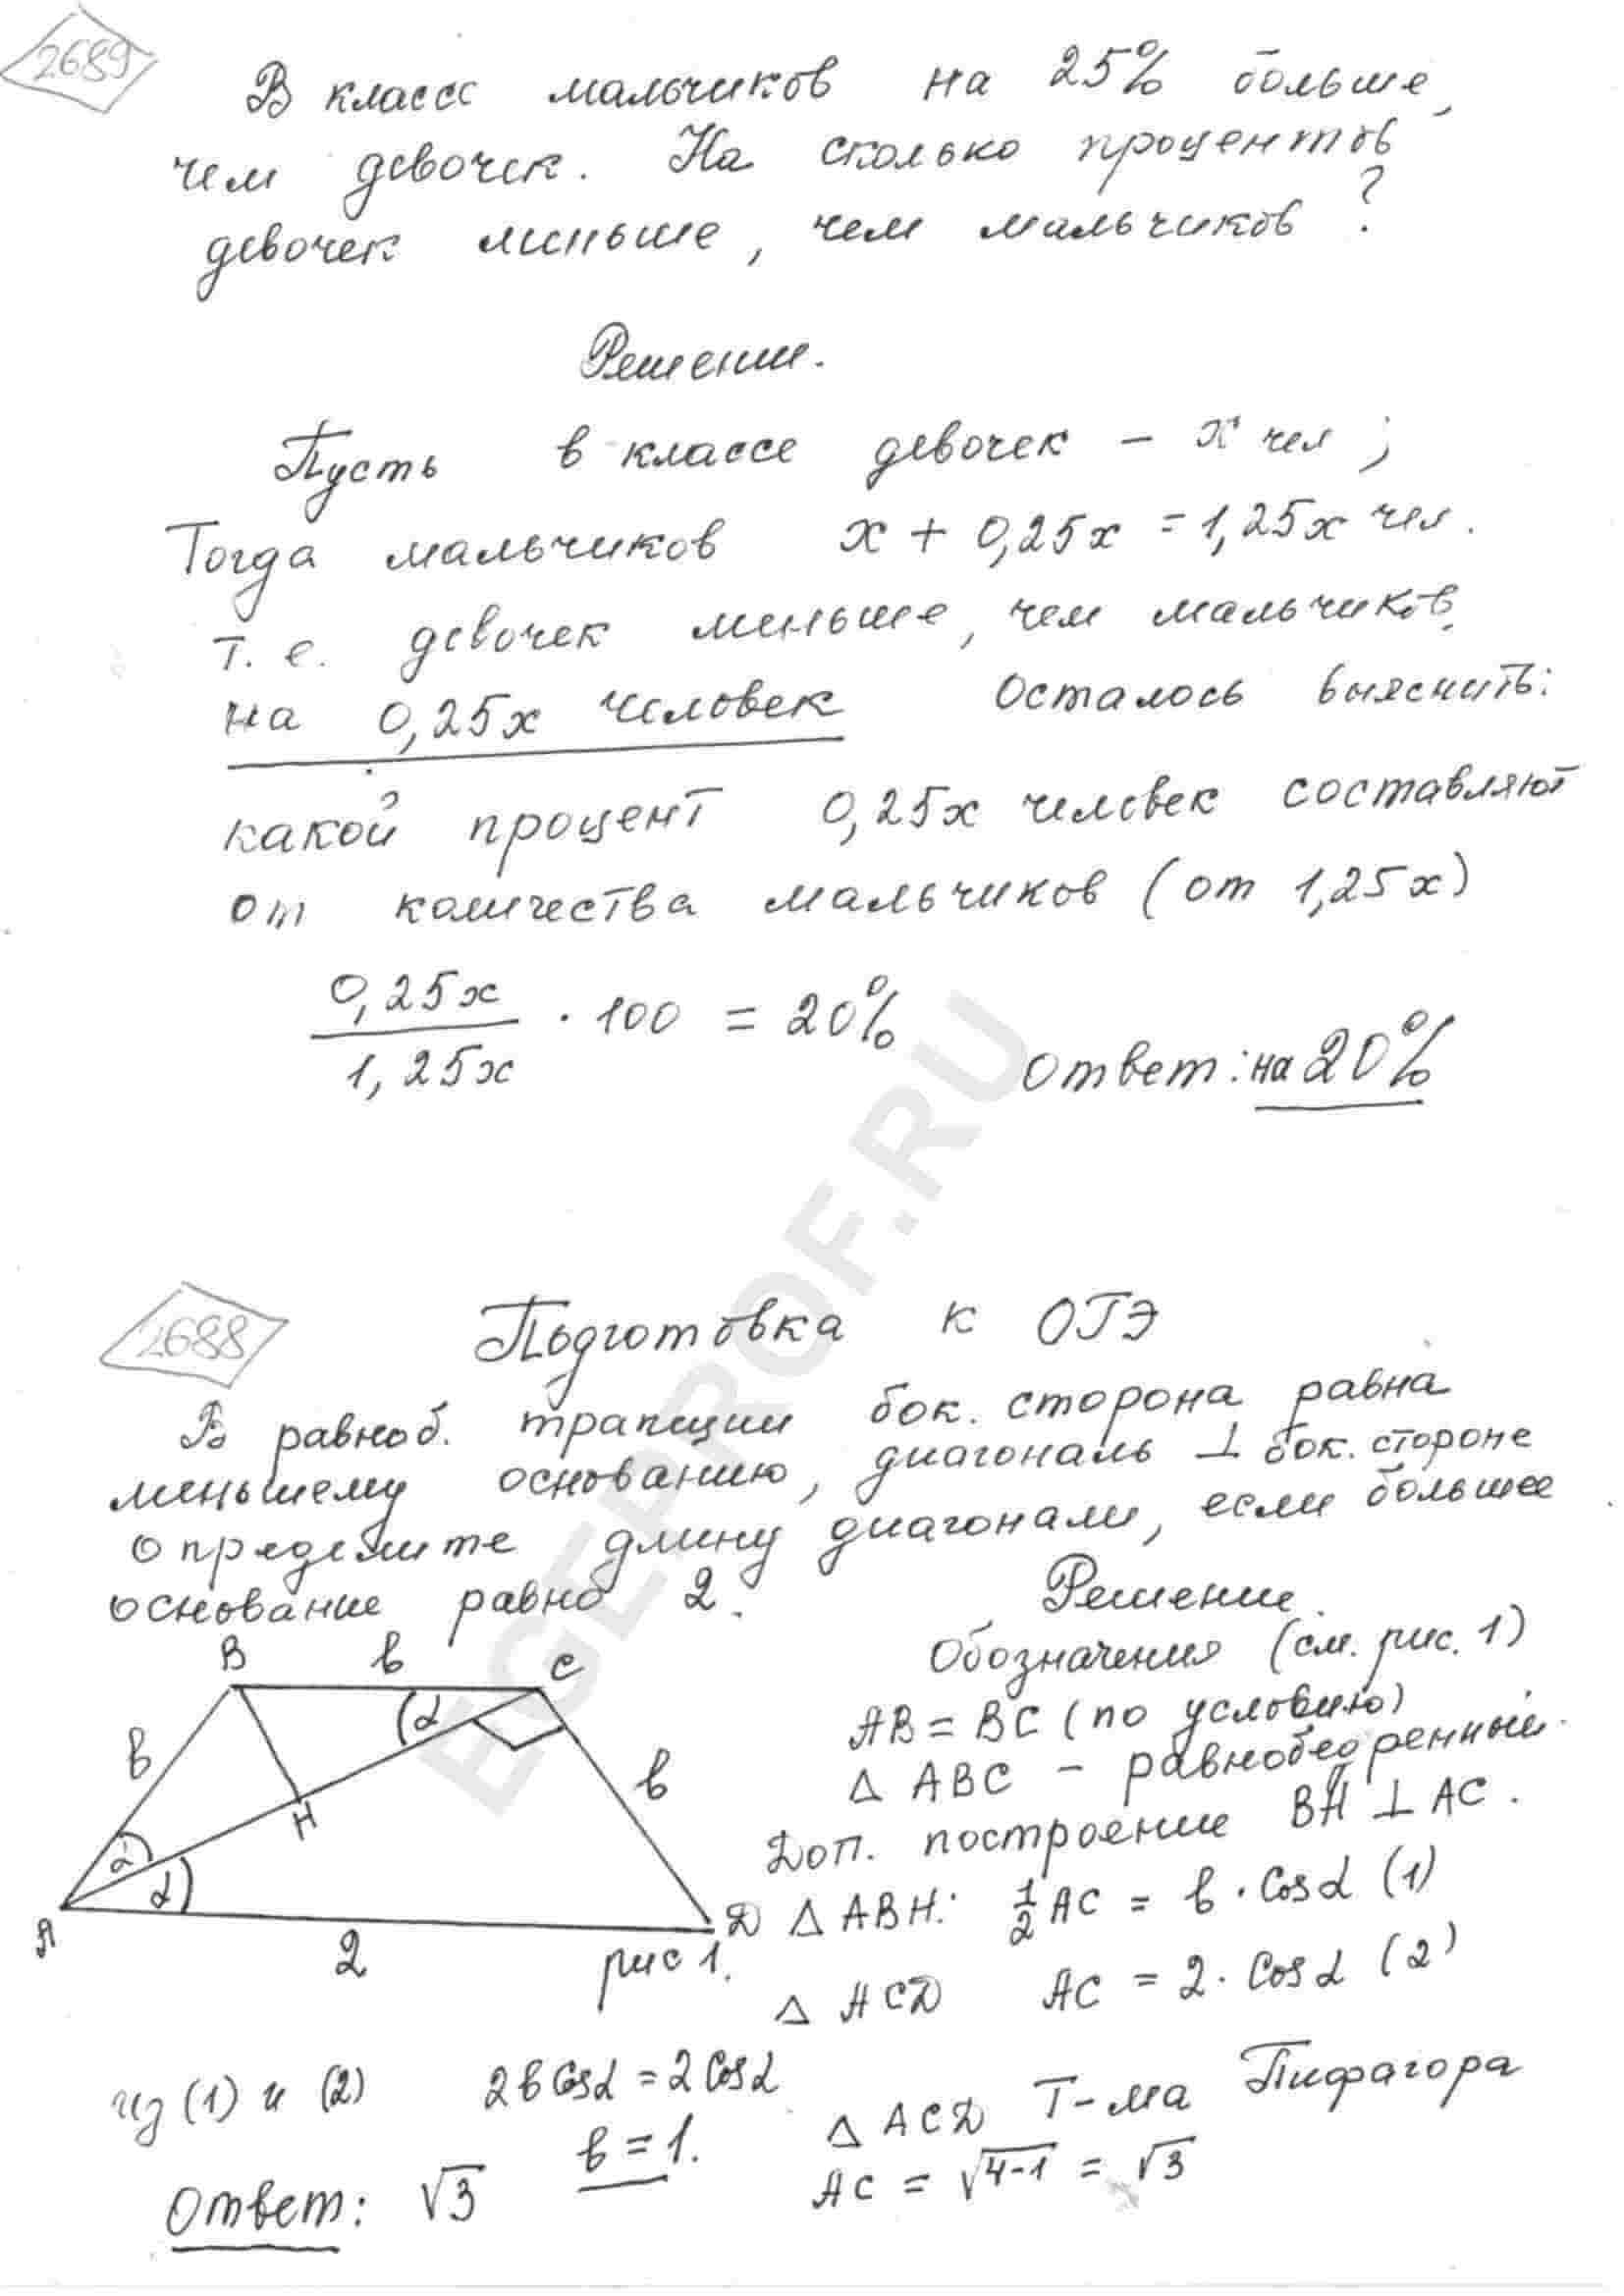 2689
В классе мальчиков на 25% больше,
чем девочек. На сколько процентов
девочек меньше, чем мальчиков?
Решение.
Пусть в классе девочек – x чел;
Тогда мальчиков x + 0,25x = 1,25x чел.
т. е. девочек меньше, чем мальчиков,
на 0,25x человек Осталось выяснить:
какой процент 0,25x человек составляют
от количества мальчиков (от 1,25x)
0,25x / 1,25x · 100 = 20%
Ответ: на 20%
EGEPROF.RU
2688
Подготовка к ОГЭ
В равноб. трапеции бок. сторона равна
меньшему основанию, диагональ ⊥ бок. стороне
определите длину диагонали, если большее
основание равно 2.
Решение.
Обозначения (см. рис. 1)
AB = BC (по условию)
△ ABC – равнобедренный.
Доп. построение BH ⊥ AC.
△ ABH: 1/2 AC = b · Cos α (1)
△ ACD AC = 2 · Cos α (2)
B b C
b α b
H
α α
A 2 D
рис 1.
из (1) и (2) 2b Cos α = 2 Cos α
b = 1.
△ ACD Т-ма Пифагора
AC = √4-1 = √3
Ответ: √3